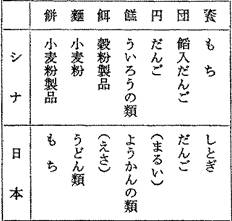 餈 もち しとぎ
団 餡入だんご だんご
円 だんご (まるい)
餻 ういろうの類 ようかんの類
餌 穀粉製品 (えさ)
麵 小麦粉 うどん類
餅 小麦粉製品 もち
シナ 日本